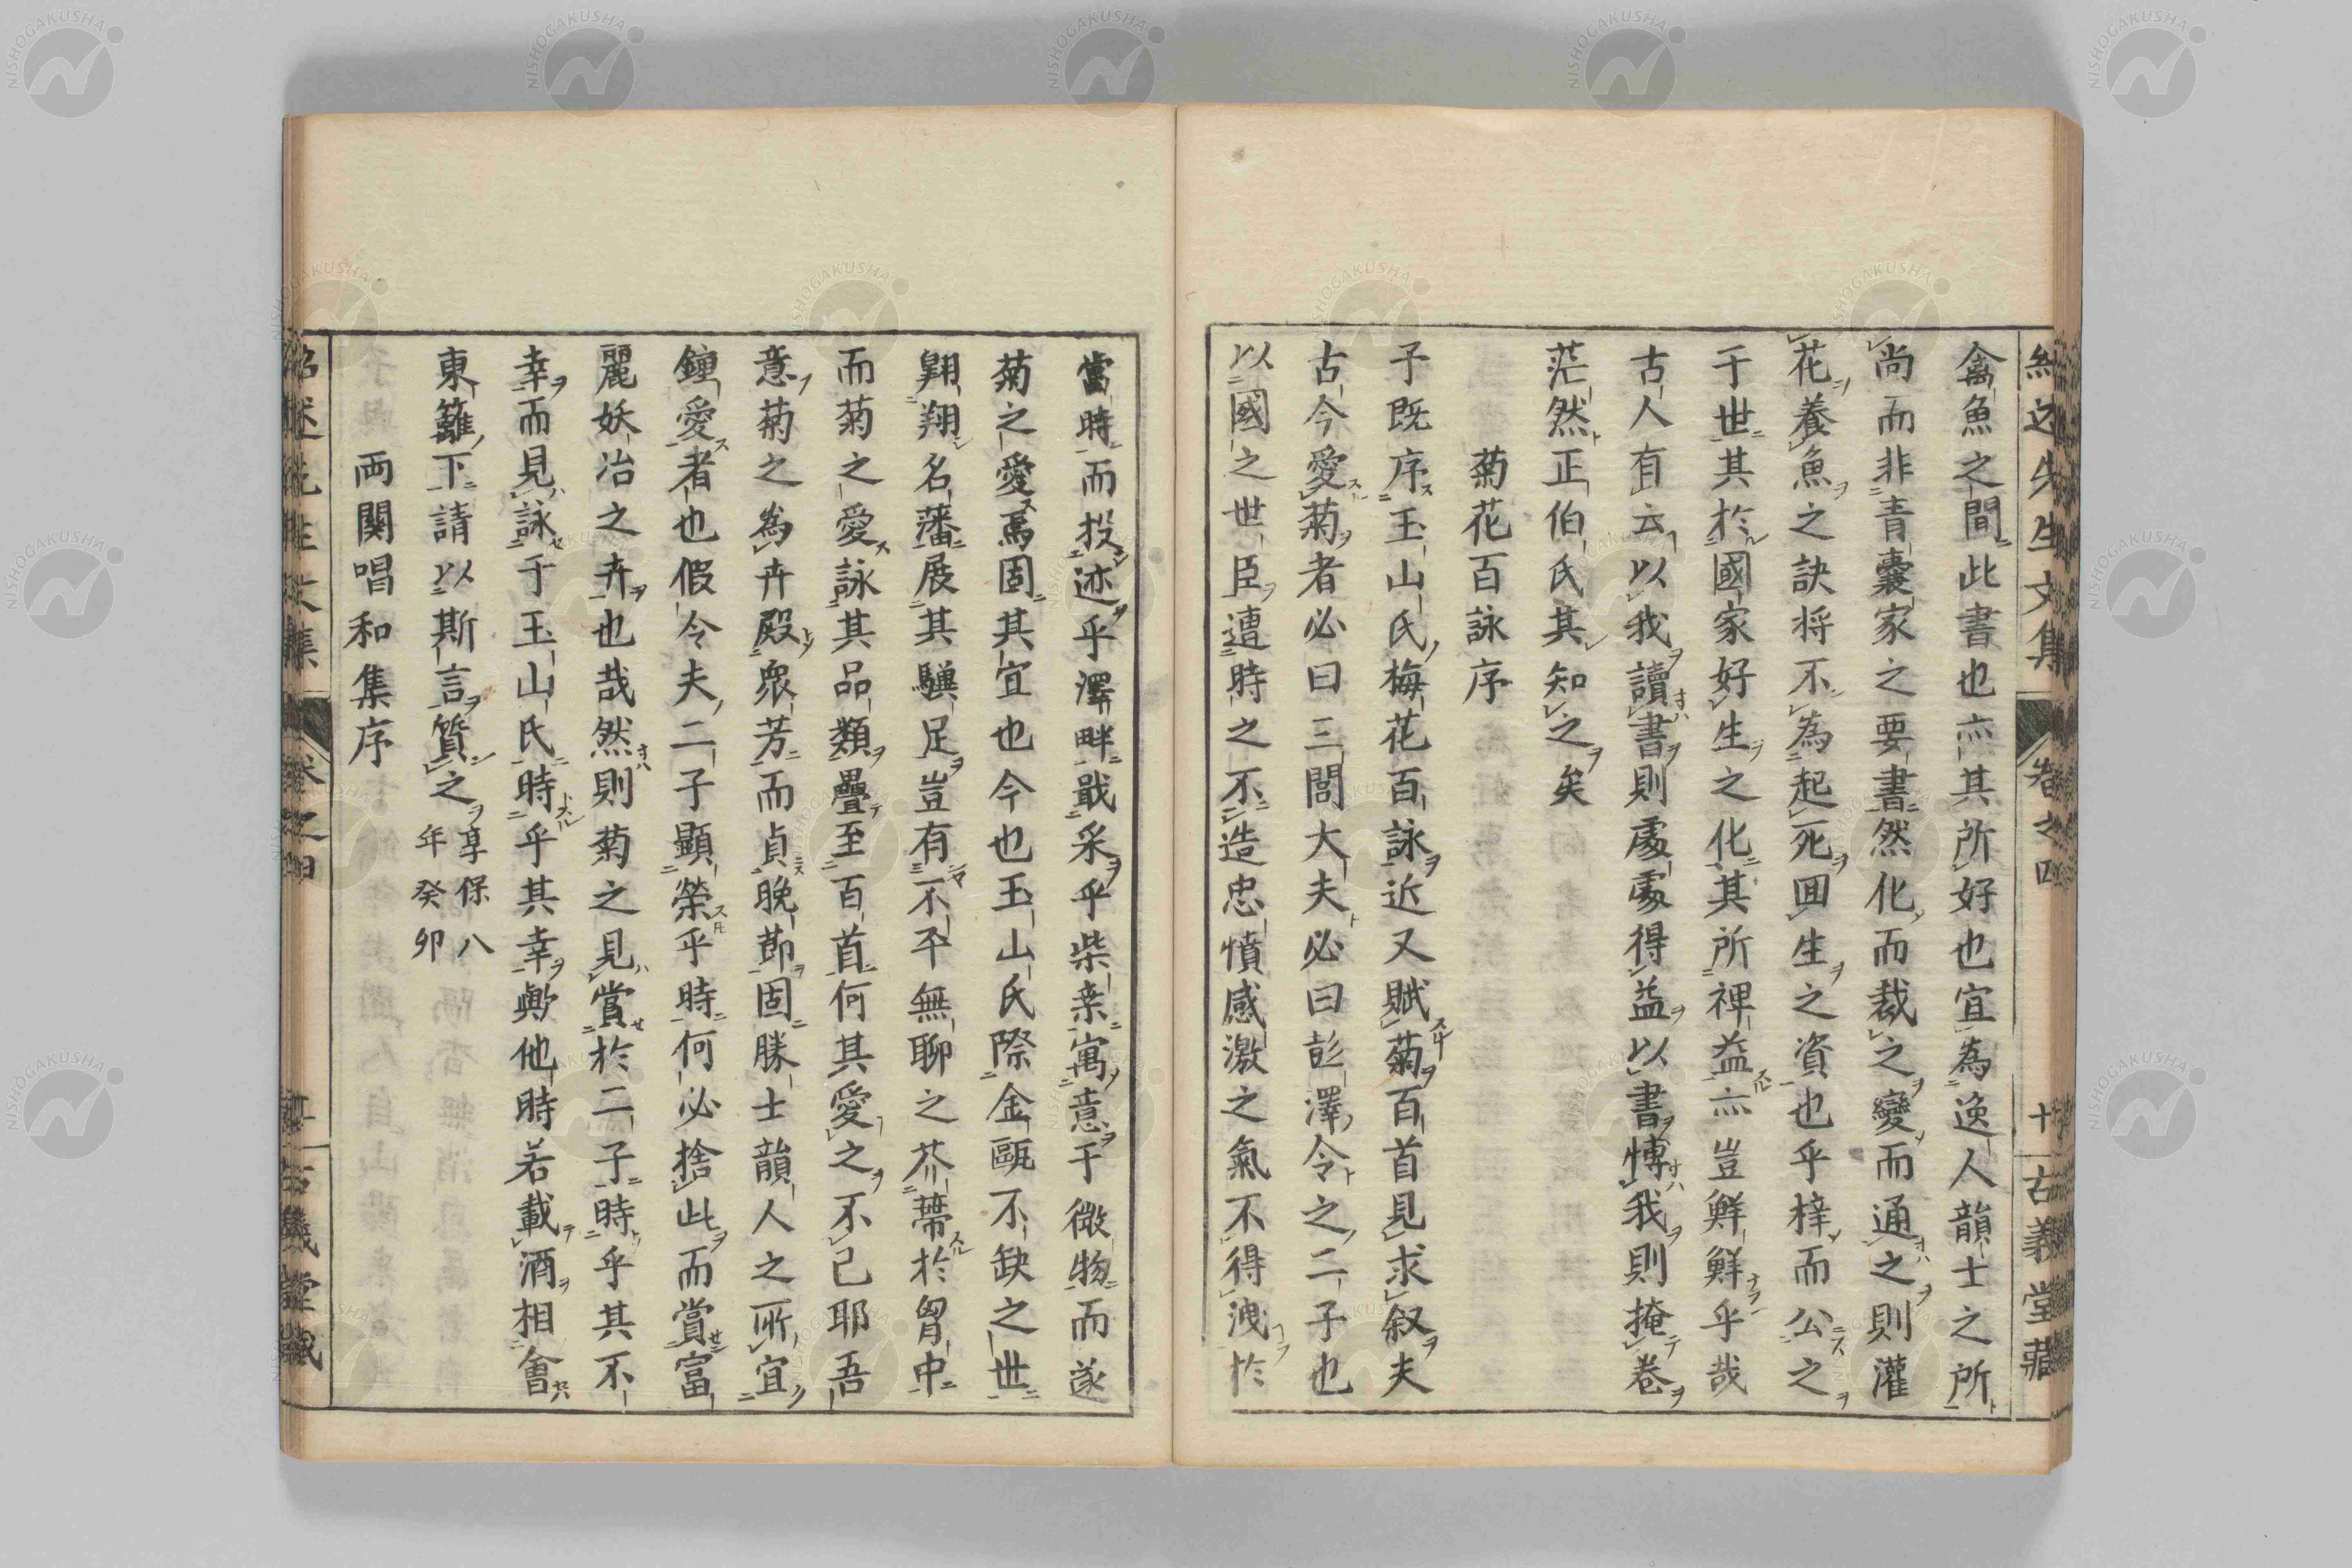 紹述先生文集 卷之四 十 古義堂藏
禽魚之間此書也亦其所好也宜為逸人韻士之所
尚而非青囊家之要書然化而裁之變而通之則灌
花養魚之訣将不為起死回生之資也乎梓而公之
于世其於國家好生之化其所裨益亦豈鮮鮮乎哉
古人有云以我讀書則處處得益以書博我則掩卷
茫然正伯氏其知之矣
菊花百詠序
子既序玉山氏梅花百詠近又賦菊百首見求叙夫
古今愛菊者必曰三閭大夫必曰彭澤令之二子也
以國之世臣遭時之不造忠憤感激之氣不得洩於
當時而投迹乎澤畔戢采乎柴桒寓意于微物而遂
菊之愛焉固其宜也今也玉山氏際金甌不缺之世
翺翔名藩展其驥足豈有不平無聊之芥蔕於胷中
而菊之愛詠其品類疊至百首何其愛之不已耶吾
意菊之為卉殿衆芳而貞晩節固勝士韻人之所宜
鐘愛者也假令夫二子顯榮乎時何必捨此而賞富
麗妖冶之卉也哉然則菊之見賞於二子時乎其不
幸而見詠于玉山氏時乎其幸歟他時若載酒相會
東籬下請以斯言質之 享保八
年癸卯
両関唱和集序
紹述先生文集 卷之四 古義堂藏
NISHOGAKUSHA